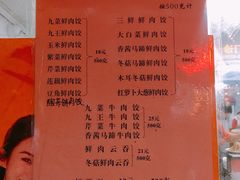 按500克计
九菜鲜肉饺
九王鲜肉饺
玉米鲜肉饺
紫菜鲜肉饺
芹菜鲜肉饺
莲藕鲜肉饺
豆角鲜肉饺
18元
500克
三鲜鲜肉饺
大白菜鲜肉饺
香茜马蹄鲜肉饺
冬菇马蹄鲜肉饺
木耳冬菇鲜肉饺
红萝卜大葱鲜肉饺
18元
500克
九菜牛肉饺
九王牛肉饺
芹菜牛肉饺
香茜马蹄牛肉饺
25元
500克
鲜肉云吞
冬菇鲜肉云吞
21元
500克